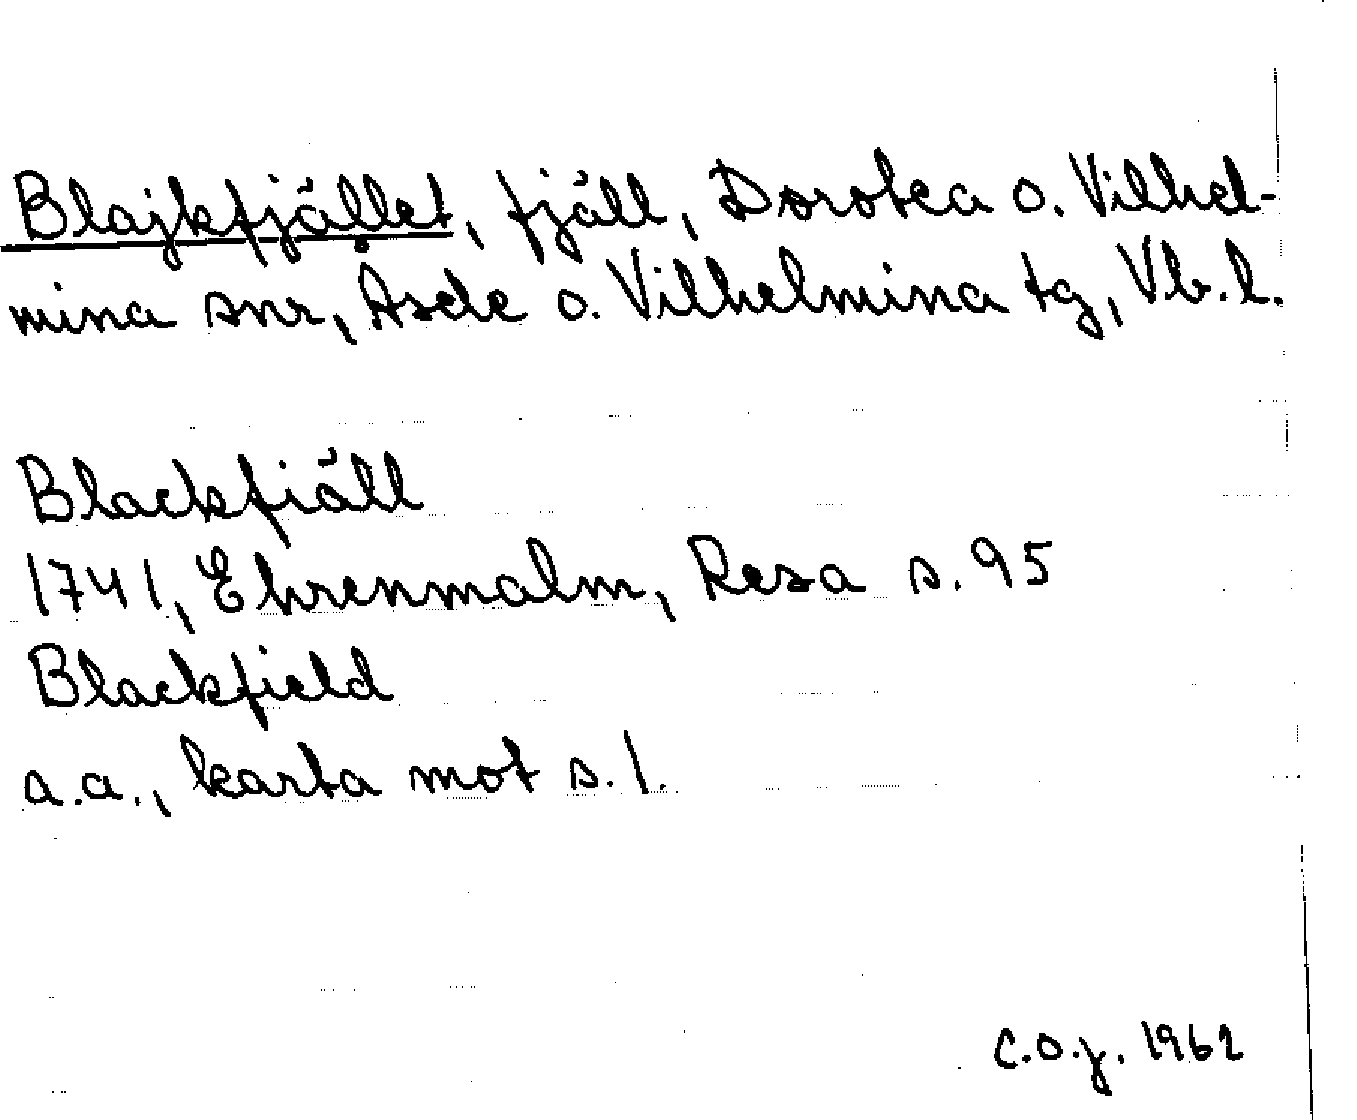 Blajkfjället, fjäll, Dorotea o. Vilhel-
mina snr, Åsele o. Vilhelmina tg, Vb. l.
Blackfiäll
1741, Ehrenmalm, Resa s. 95
Blackfield
a.a., karta mot s. 1.
C.O.J. 1962